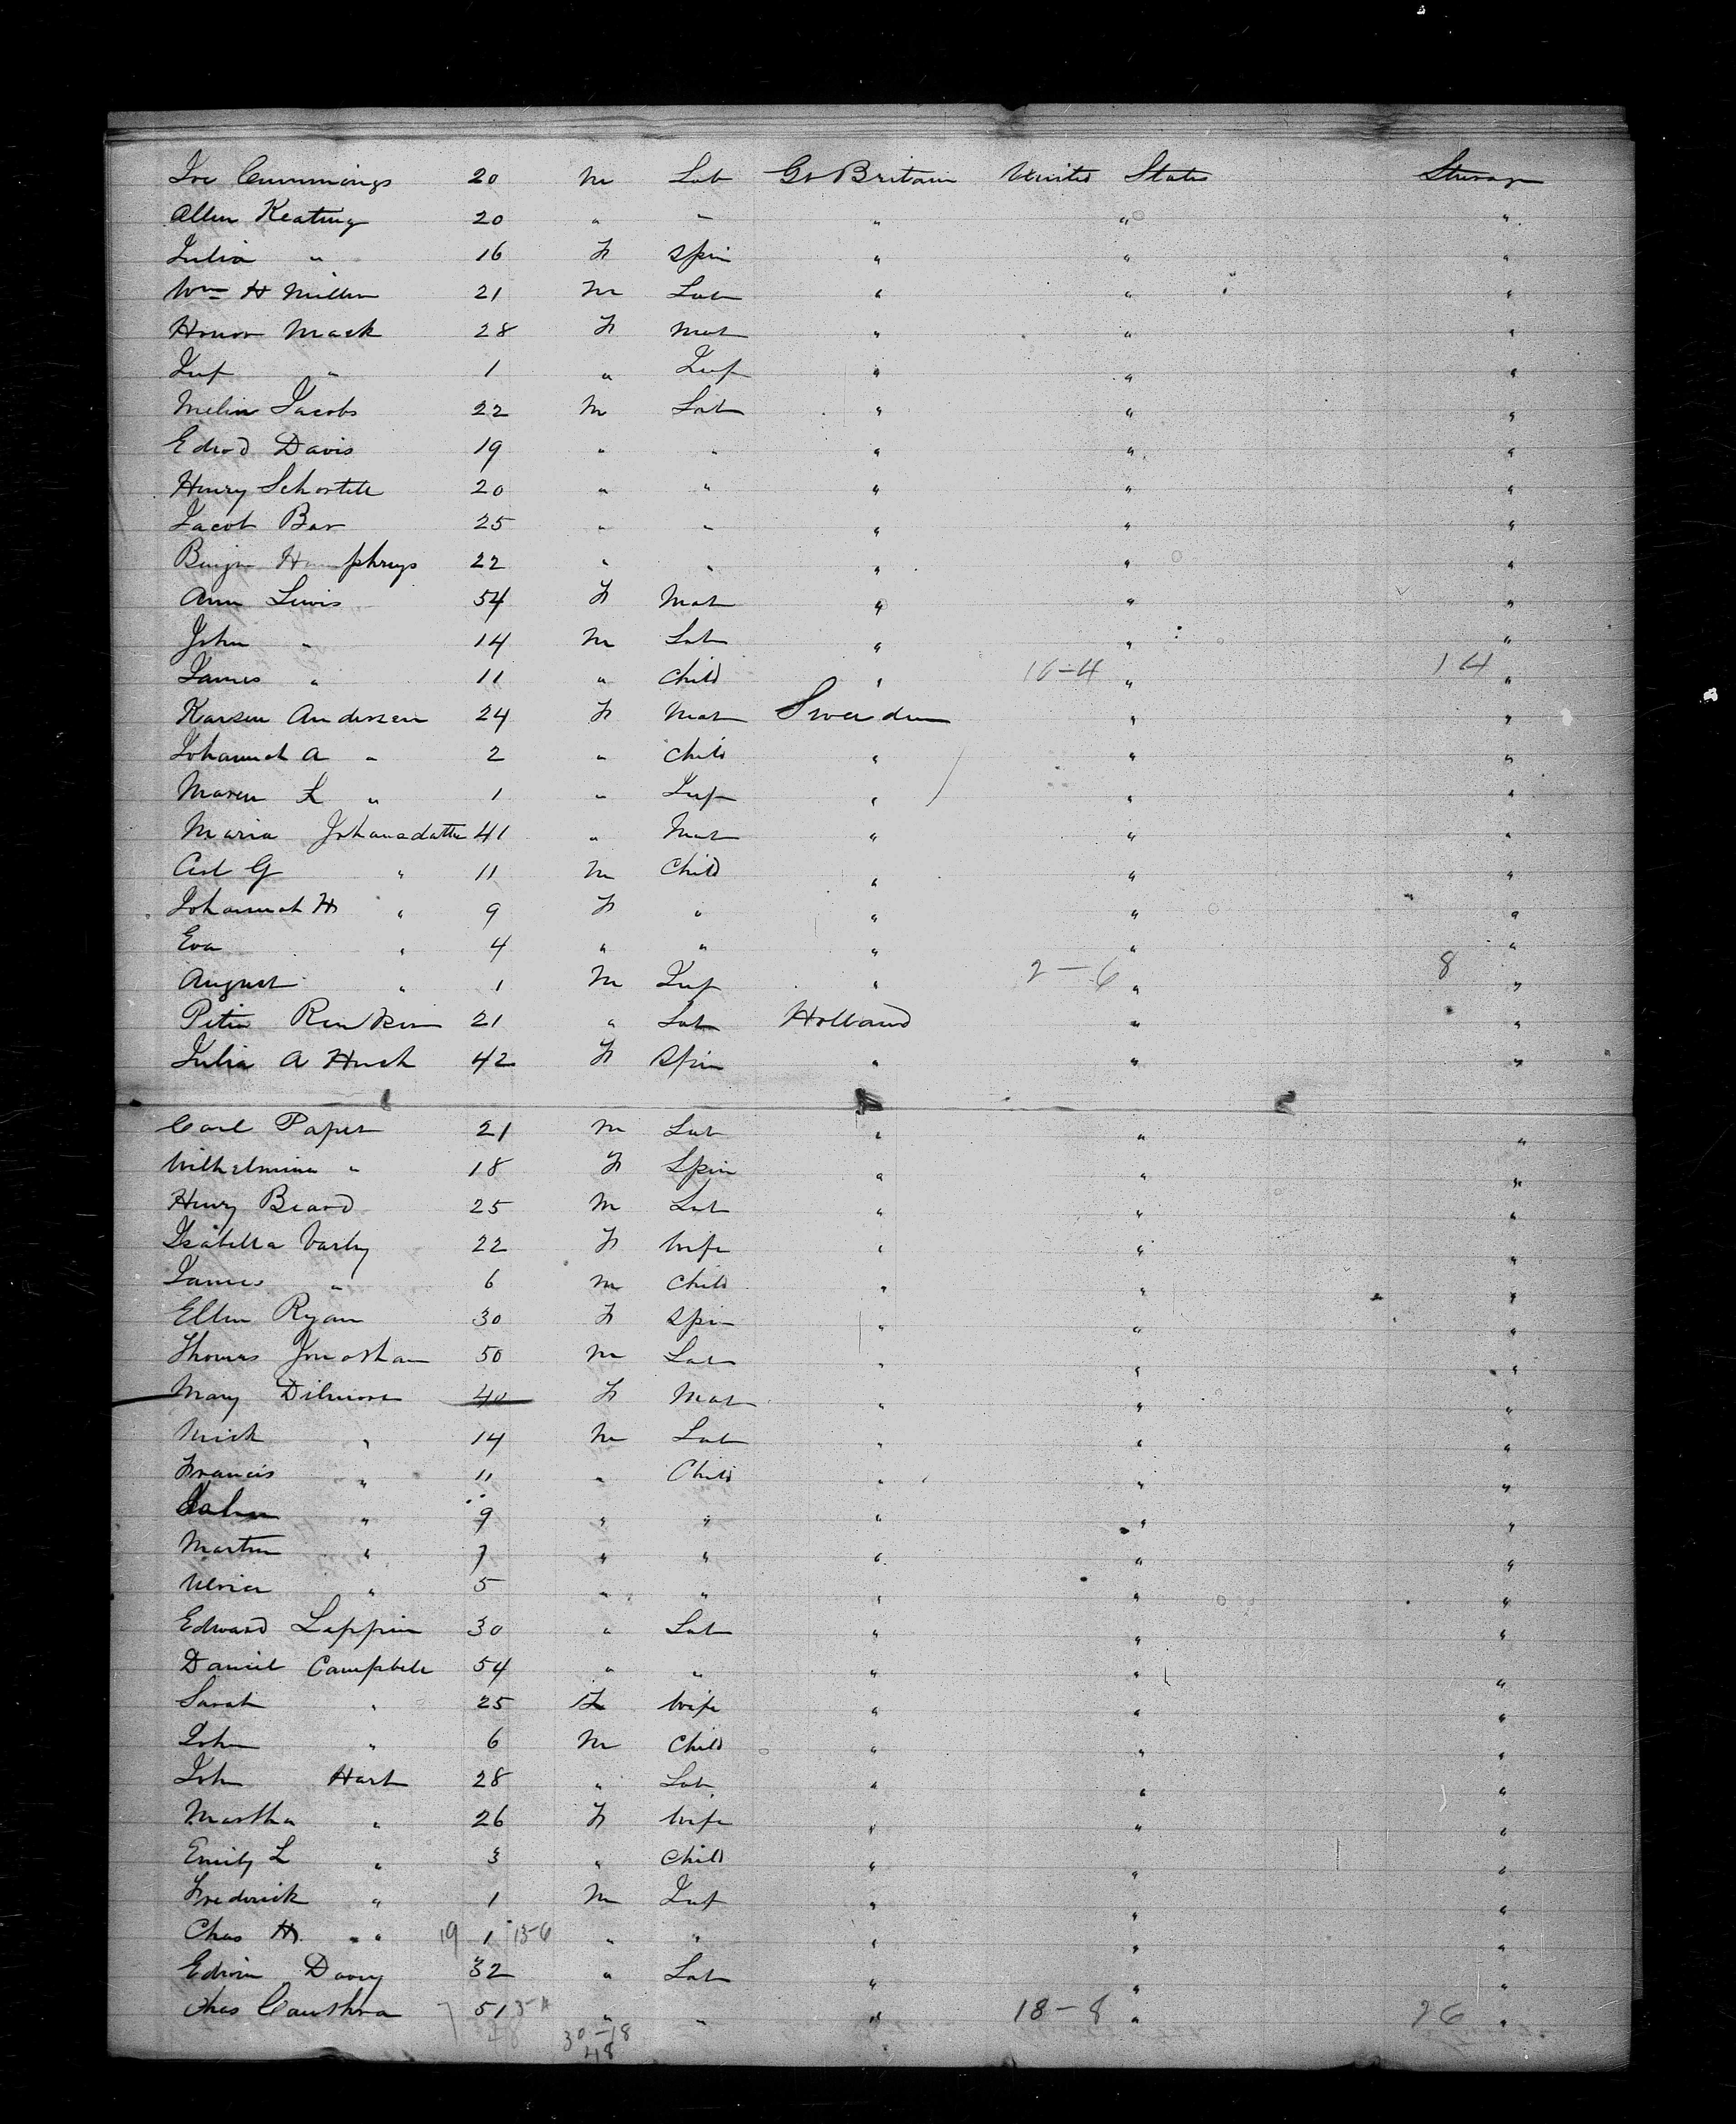 Joe Cummings 20 m Lab Gt Britain United States Steerage
Allen Keating 20 " " " " "
Julia " 16 F Spin " " "
Wm H Miller 21 m Lab " " "
Honor Mack 28 F Mat " " "
Inf " 1 " Inf " " "
Jacobs 22 m Lab " " "
Edwd Davis 19 " " " " "
Henry 20 " " " " "
Jacob Bar 25 " " " " "
Benjn Humphrys 22 " " " " "
Ann Lewis 54 F Mat " " "
John " 14 m Lab " " "
James " 11 " Child " 10-4 " 14 "
Karsen Andersen 24 F Mat Sweeden " "
Johannah A " 2 " Child " " "
Maren L " 1 " Inf " " "
Maria Johansdatter 41 " Mat " " "
G " 11 m Child " " "
Johannah H " 9 F " " " "
Eva " 4 " " " " "
August " 1 M Inf " 2-6 " 8 "
Peter 21 " Lab Holland " "
Julia A 42 F Spin " " "
Carl Paper 21 m Lab " " "
Wilhelmina " 18 F Spin " " "
Henry Beard 25 m Lab " " "
Isabella Varley 22 F Wife " " "
James " 6 m Child " " "
Ellen Ryan 30 F Spin " " "
Thomas Jonathan 50 m Lab " " "
Mary Dilmore 40 F Mat " " "
Mich " 14 m Lab " " "
Francis " 11 " Child " " "
John " 9 " " " " "
Martin " 7 " " " " "
" 5 " " " " "
Edward Lappin 30 " Lab " " "
Daniel Campbell 54 " " " " "
Sarah " 25 F Wife " " "
John " 6 m Child " " "
John Hart 28 " Lab " " "
Martha " 26 F Wife " " "
Emily L " 3 " Child " " "
Frederick " 1 m Inf " " "
Chas H. " 19 1 13-6 " " " " "
Edwin Davy 32 " Lab " " "
Chas Cawthra 51 " " " 18-8 " 26 "
30-18
48